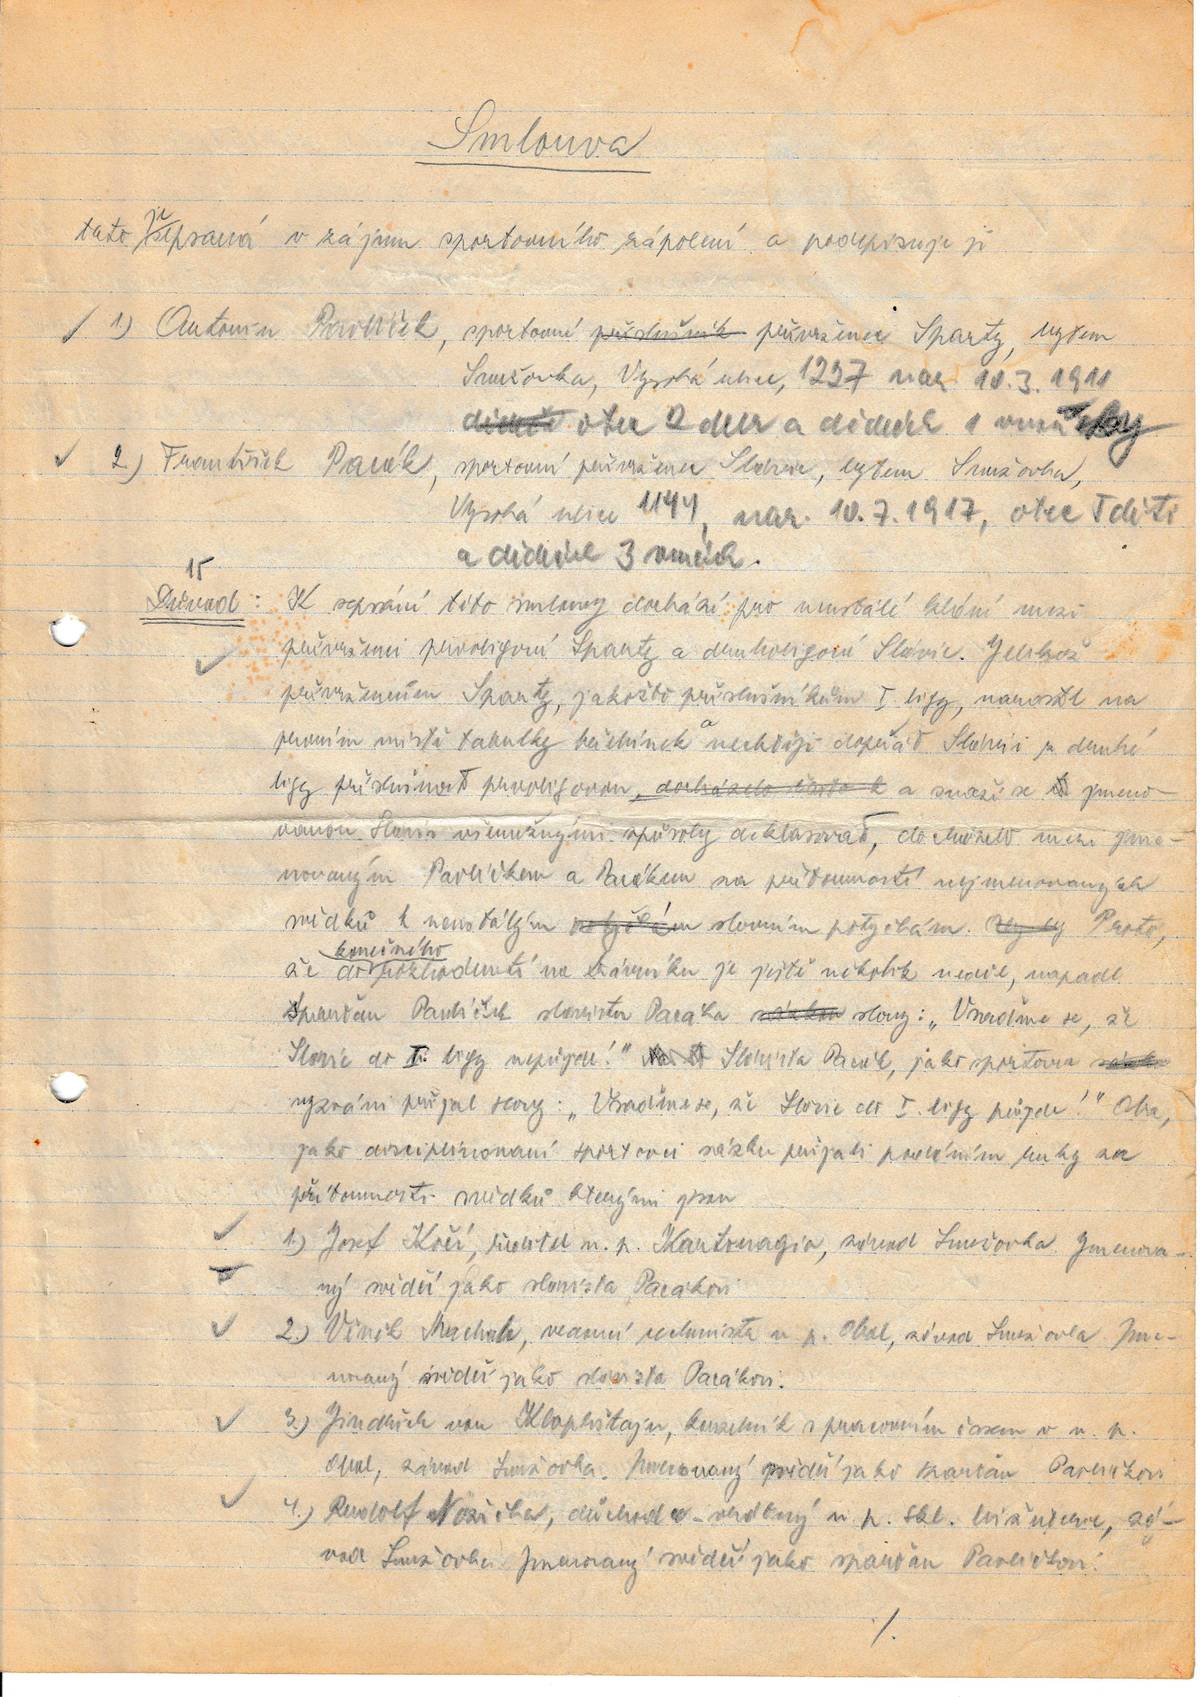 Smlouva
tato je sepsaná v zájmu sportovního zápolení a podepisuje ji
1) Antonín Pavlíček, sportovní příslušník přívrženec Sparty, bytem
Smržovka, Vysoká ulice, 1227 nar. 10.3.1911
otec 2 dcer a dědeček 1
2) František Pacák, sportovní přívrženec Slávie, bytem Smržovka,
Vysoká ulice 1144, nar. 10.7.1917, otec dětí
a dědeček 3 vnuček.
15
Důvod: K sepsání této smlouvy dochází pro neustálé mezi
přívrženci prvoligové Sparty a druholigové Slávie. Jelikož
přívržencům Sparty, jakožto příslušníkům I ligy, narostl na
prvním místě tabulky hřebínek a nechtějí dopřát Slávii z druhé
ligy příslušnost prvoligovou, docházelo často k a snaží se jmeno-
vanou Slavii všemožnými způsoby deklasovat, docházelo mezi jme-
novaným Pavlíčkem a Pacákem za přítomnosti nejmenovaných
svědků k neustálým slovním potyčkám. Proto,
že do konečného rozhodnutí na trávníku je ještě několik neděl, napadl
sparťan Pavlíček slavistu Pacáka slovy: „Vsaďme se, že
Slavie do I. ligy nepůjde!" Slávista Pacák, jako sportovec
vyzvání přijal slovy: „Vsaďme se, že Slavie do I. ligy půjde!" Oba,
jako disciplinovaní sportovci sázku přijali podáním ruky za
přítomnosti svědků kterými jsou
1.) Josef Kočí, ředitel n. p. Kartonagia, závod Smržovka. Jmenova-
ný svědčí jako slavista Pacákovi
2.) Vinčl Machek, vedoucí n. p. Obal, závod Smržovka. Jme-
novaný svědčí jako slavista Pacákovi.
3.) Jindřich von Klopštajn, s pracovním časem v n. p.
Obal, závod Smržovka. Jmenovaný svědčí jako sparťan Pavlíčkovi
4.) Rudolf Nožička, n. p. Skl. bižuterie, zá-
vod Smržovka. Jmenovaný svědčí jako sparťan Pavlíčkovi.
./.